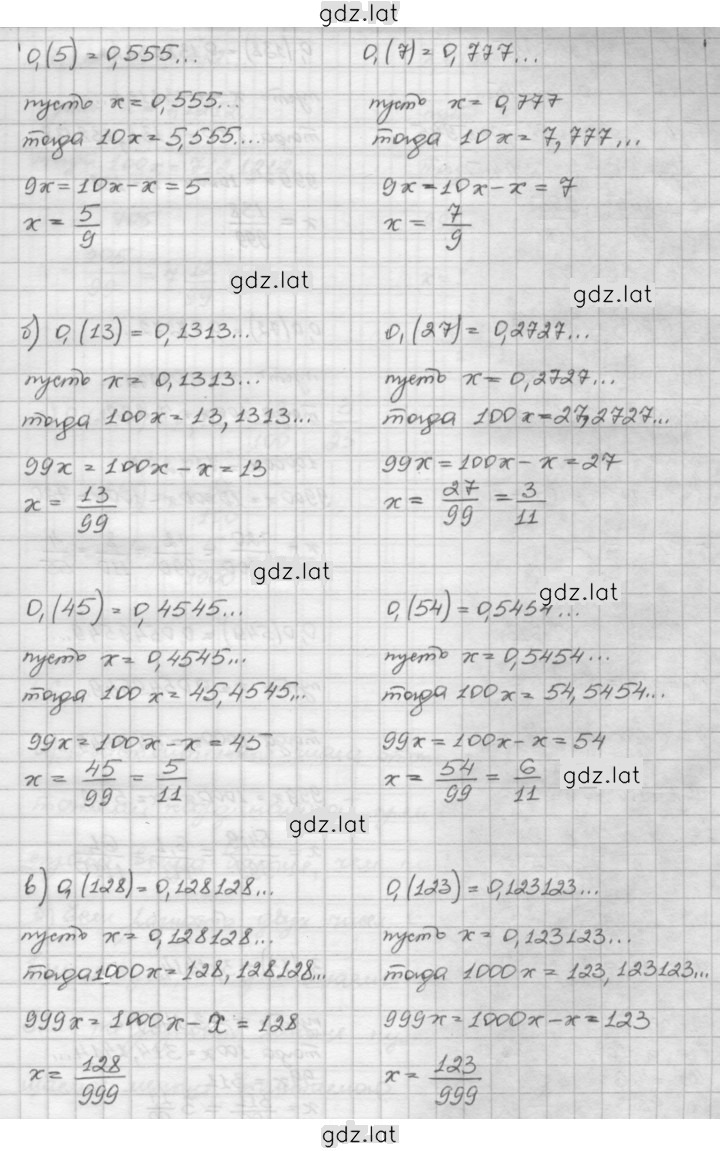 gdz.lat
0,(5) = 0,555...
пусть x = 0,555...
тогда 10x = 5,555...
9x = 10x - x = 5
x = 5/9
0,(7) = 0,777...
пусть x = 0,777
тогда 10x = 7,777...
9x = 10x - x = 7
x = 7/9
gdz.lat
gdz.lat
б) 0,(13) = 0,1313...
пусть x = 0,1313...
тогда 100x = 13,1313...
99x = 100x - x = 13
x = 13/99
0,(27) = 0,2727...
пусть x = 0,2727...
тогда 100x = 27,2727...
99x = 100x - x = 27
x = 27/99 = 3/11
gdz.lat
gdz.lat
0,(45) = 0,4545...
пусть x = 0,4545...
тогда 100x = 45,4545...
99x = 100x - x = 45
x = 45/99 = 5/11
0,(54) = 0,5454...
пусть x = 0,5454...
тогда 100x = 54,5454...
99x = 100x - x = 54
x = 54/99 = 6/11
gdz.lat
gdz.lat
в) 0,(128) = 0,128128...
пусть x = 0,128128...
тогда 1000x = 128,128128...
999x = 1000x - x = 128
x = 128/999
0,(123) = 0,123123...
пусть x = 0,123123...
тогда 1000x = 123,123123...
999x = 1000x - x = 123
x = 123/999
gdz.lat